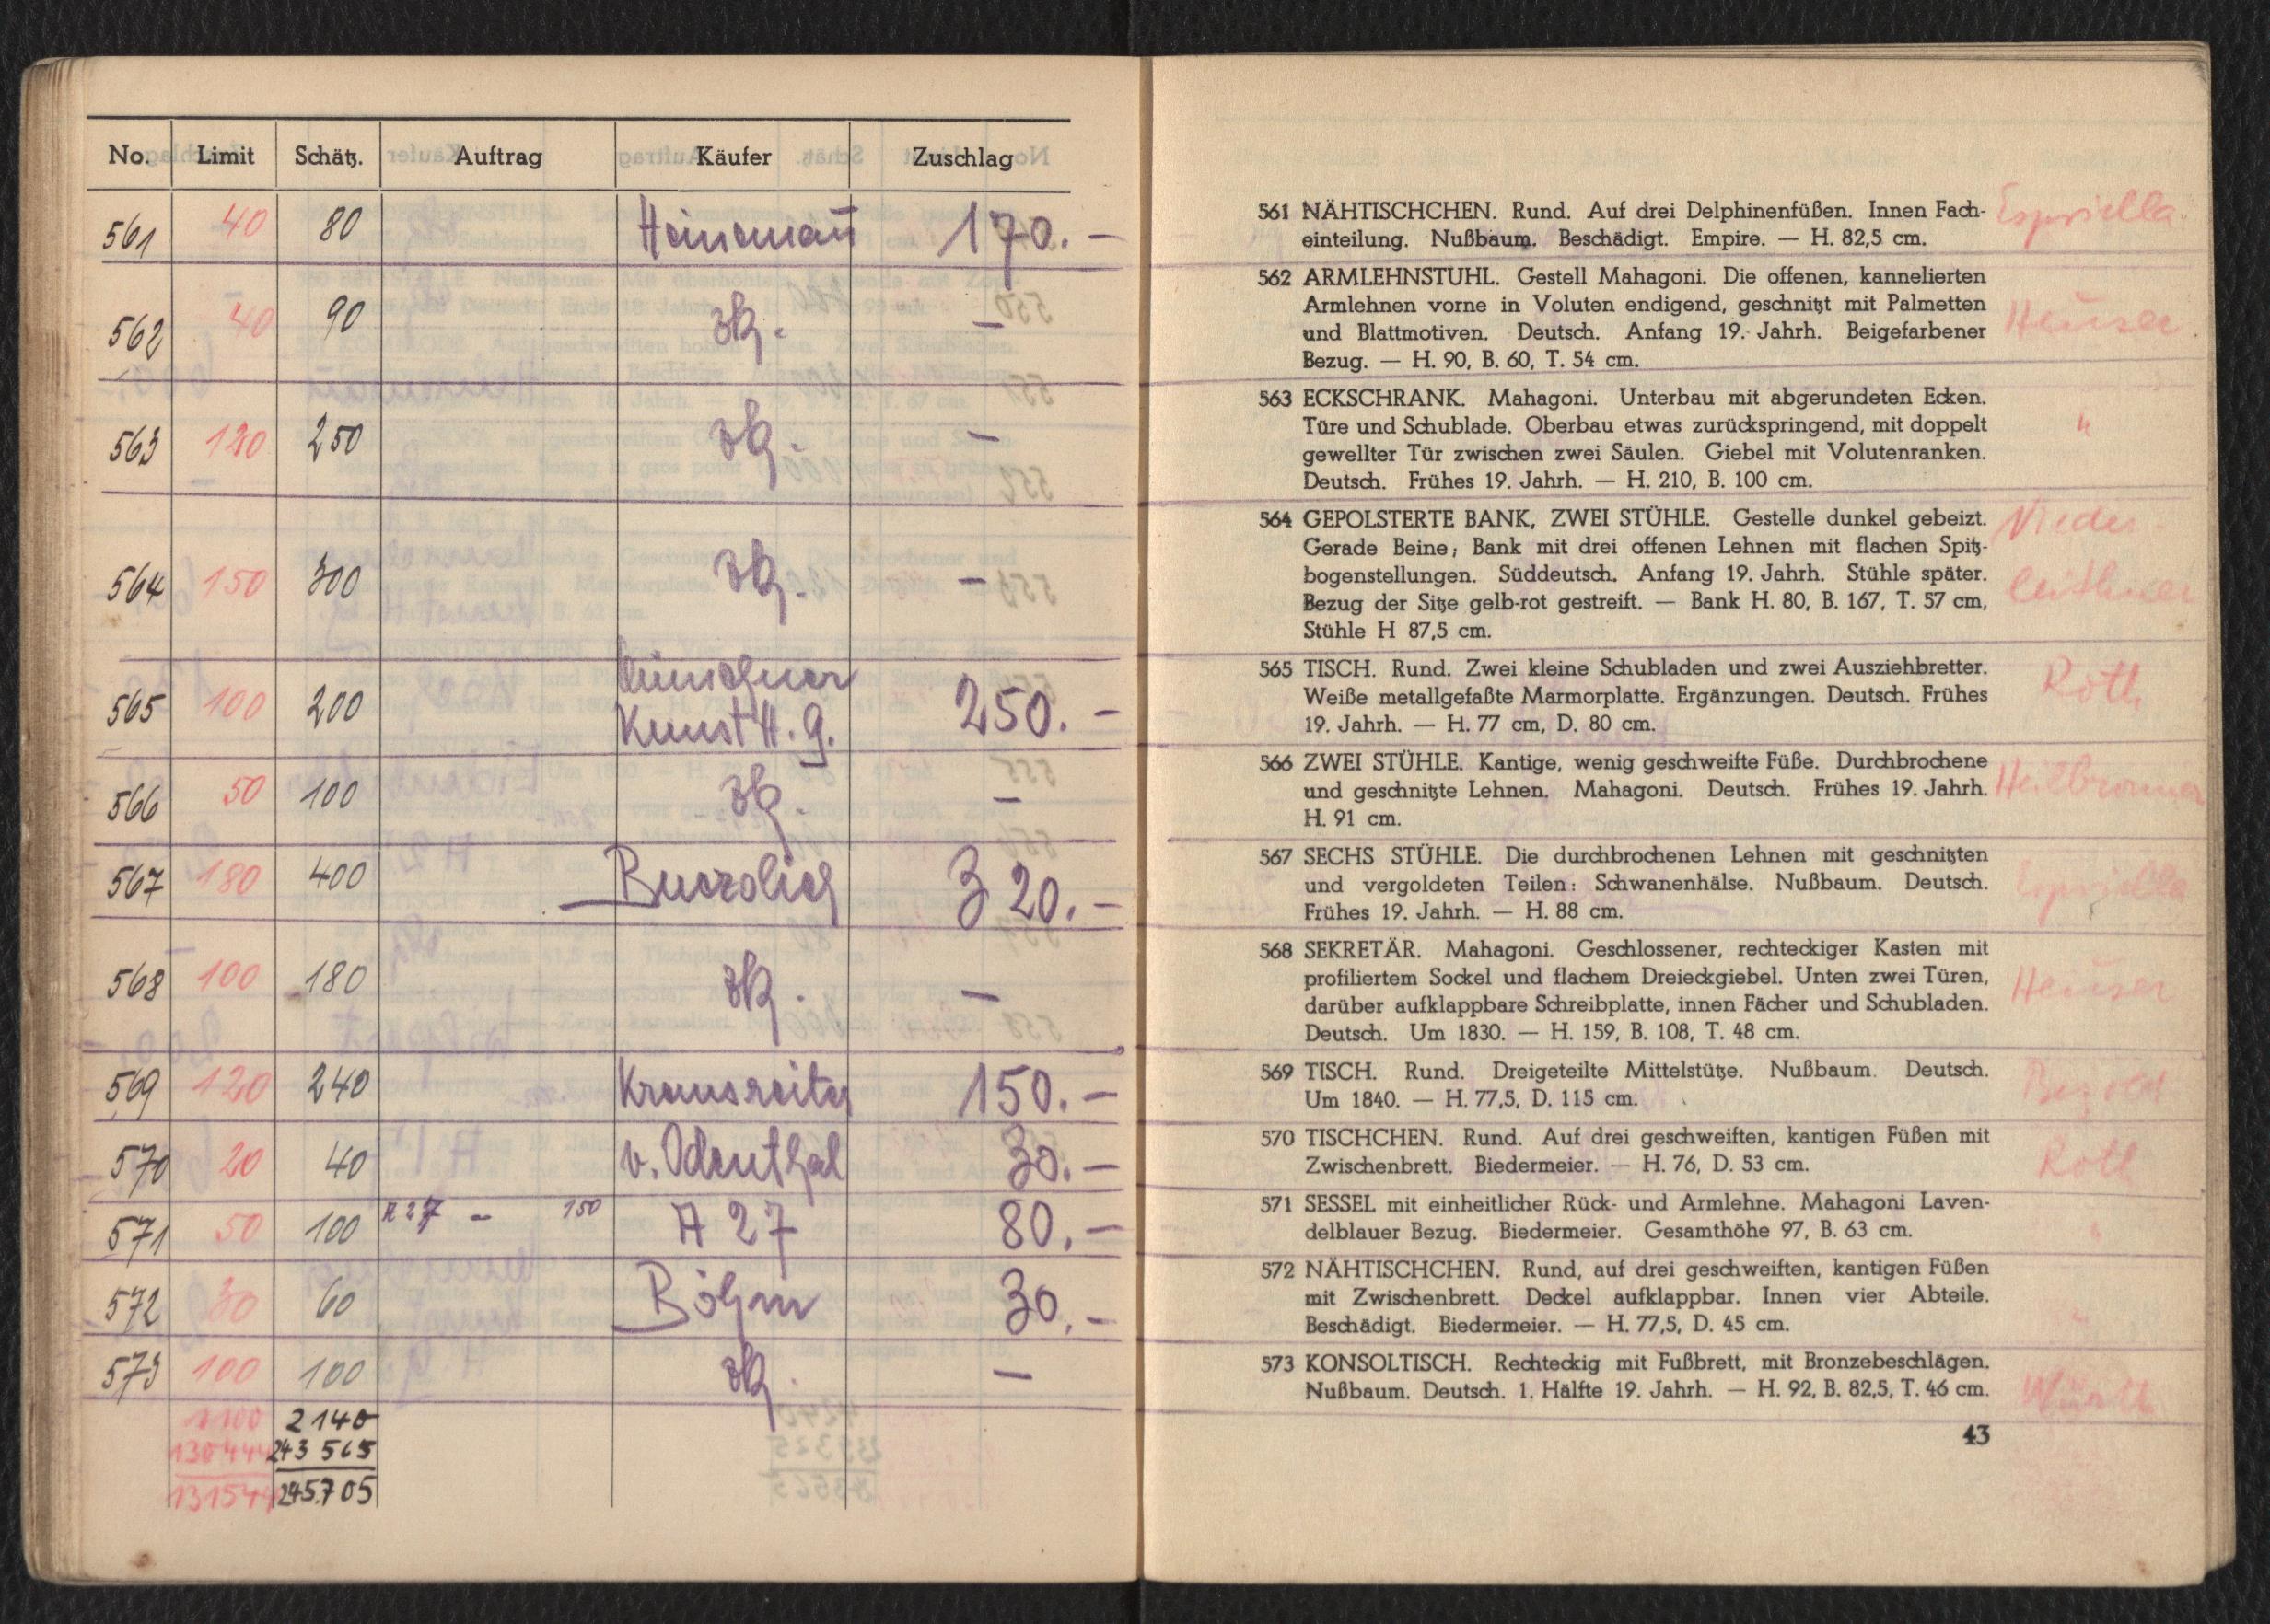 No. Limit Schätz. Auftrag Käufer Zuschlag
561 40 80 Heinemann 170.–
562 40 90 –
563 120 250 –
564 150 300 –
565 100 200 Münchner Kunst H. g. 250.–
566 50 100 –
567 180 400 320.–
568 100 180 –
569 120 240 Krausreiter 150.–
570 20 40 v. Odenthal 30.–
571 50 100 A 27 – 150 A 27 80.–
572 30 60 Böhm 30.–
573 100 100 –
1100 2140
130444 243 565
131544 245.705
561 NÄHTISCHCHEN. Rund. Auf drei Delphinenfüßen. Innen Fach- Espriella.
einteilung. Nußbaum. Beschädigt. Empire. — H. 82,5 cm.
562 ARMLEHNSTUHL. Gestell Mahagoni. Die offenen, kannelierten
Armlehnen vorne in Voluten endigend, geschnitzt mit Palmetten Heuser.
und Blattmotiven. Deutsch. Anfang 19. Jahrh. Beigefarbener
Bezug. — H. 90, B. 60, T. 54 cm.
563 ECKSCHRANK. Mahagoni. Unterbau mit abgerundeten Ecken.
Türe und Schublade. Oberbau etwas zurückspringend, mit doppelt "
gewellter Tür zwischen zwei Säulen. Giebel mit Volutenranken.
Deutsch. Frühes 19. Jahrh. — H. 210, B. 100 cm.
564 GEPOLSTERTE BANK, ZWEI STÜHLE. Gestelle dunkel gebeizt. Nieder
Gerade Beine; Bank mit drei offenen Lehnen mit flachen Spitz-
bogenstellungen. Süddeutsch. Anfang 19. Jahrh. Stühle später. leithner
Bezug der Sitze gelb-rot gestreift. — Bank H. 80, B. 167, T. 57 cm,
Stühle H 87,5 cm.
565 TISCH. Rund. Zwei kleine Schubladen und zwei Ausziehbretter. Roth
Weiße metallgefaßte Marmorplatte. Ergänzungen. Deutsch. Frühes
19. Jahrh. — H. 77 cm, D. 80 cm.
566 ZWEI STÜHLE. Kantige, wenig geschweifte Füße. Durchbrochene Heilbronner
und geschnitzte Lehnen. Mahagoni. Deutsch. Frühes 19. Jahrh.
H. 91 cm.
567 SECHS STÜHLE. Die durchbrochenen Lehnen mit geschnitzten
und vergoldeten Teilen: Schwanenhälse. Nußbaum. Deutsch. Espriella
Frühes 19. Jahrh. — H. 88 cm.
568 SEKRETÄR. Mahagoni. Geschlossener, rechteckiger Kasten mit
profiliertem Sockel und flachem Dreieckgiebel. Unten zwei Türen, Heuser
darüber aufklappbare Schreibplatte, innen Fächer und Schubladen.
Deutsch. Um 1830. — H. 159, B. 108, T. 48 cm.
569 TISCH. Rund. Dreigeteilte Mittelstütze. Nußbaum. Deutsch.
Um 1840. — H. 77,5, D. 115 cm.
570 TISCHCHEN. Rund. Auf drei geschweiften, kantigen Füßen mit
Zwischenbrett. Biedermeier. — H. 76, D. 53 cm. Roth
571 SESSEL mit einheitlicher Rück- und Armlehne. Mahagoni Laven-
delblauer Bezug. Biedermeier. Gesamthöhe 97, B. 63 cm. "
572 NÄHTISCHCHEN. Rund, auf drei geschweiften, kantigen Füßen
mit Zwischenbrett. Deckel aufklappbar. Innen vier Abteile. "
Beschädigt. Biedermeier. — H. 77,5, D. 45 cm.
573 KONSOLTISCH. Rechteckig mit Fußbrett, mit Bronzebeschlägen.
Nußbaum. Deutsch. 1. Hälfte 19. Jahrh. — H. 92, B. 82,5, T. 46 cm.
43